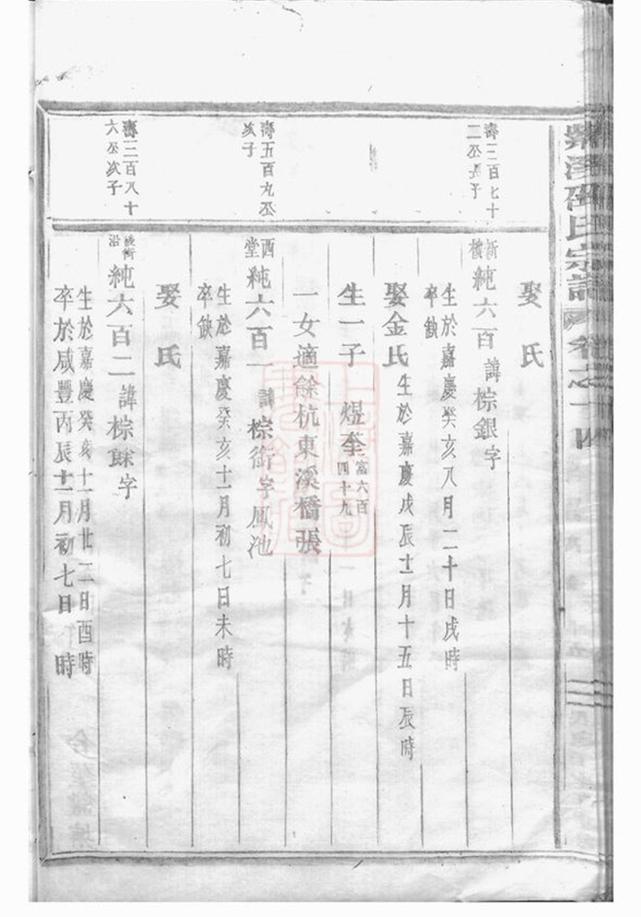 氏宗譜 卷之十四
娶氏
壽三百七十
二丞長子
新橋 純六百 諱棕銀字
生於嘉慶癸亥八月二十日戌時
卒缺
娶金氏 生於嘉慶戊辰十一月十五日辰時
生一子 煜奎 富六百四十九
一女適餘杭東溪橋張
壽五百九丞
次子
西堂 純六百一 諱棕衡字鳳池
生於嘉慶癸亥十一月初七日未時
卒缺
娶氏
壽三百八十
六丞次子
後新沿 純六百二 諱棕銤字
生於嘉慶癸亥十一月廿二日酉時
卒於咸豐丙辰十一月初七日時